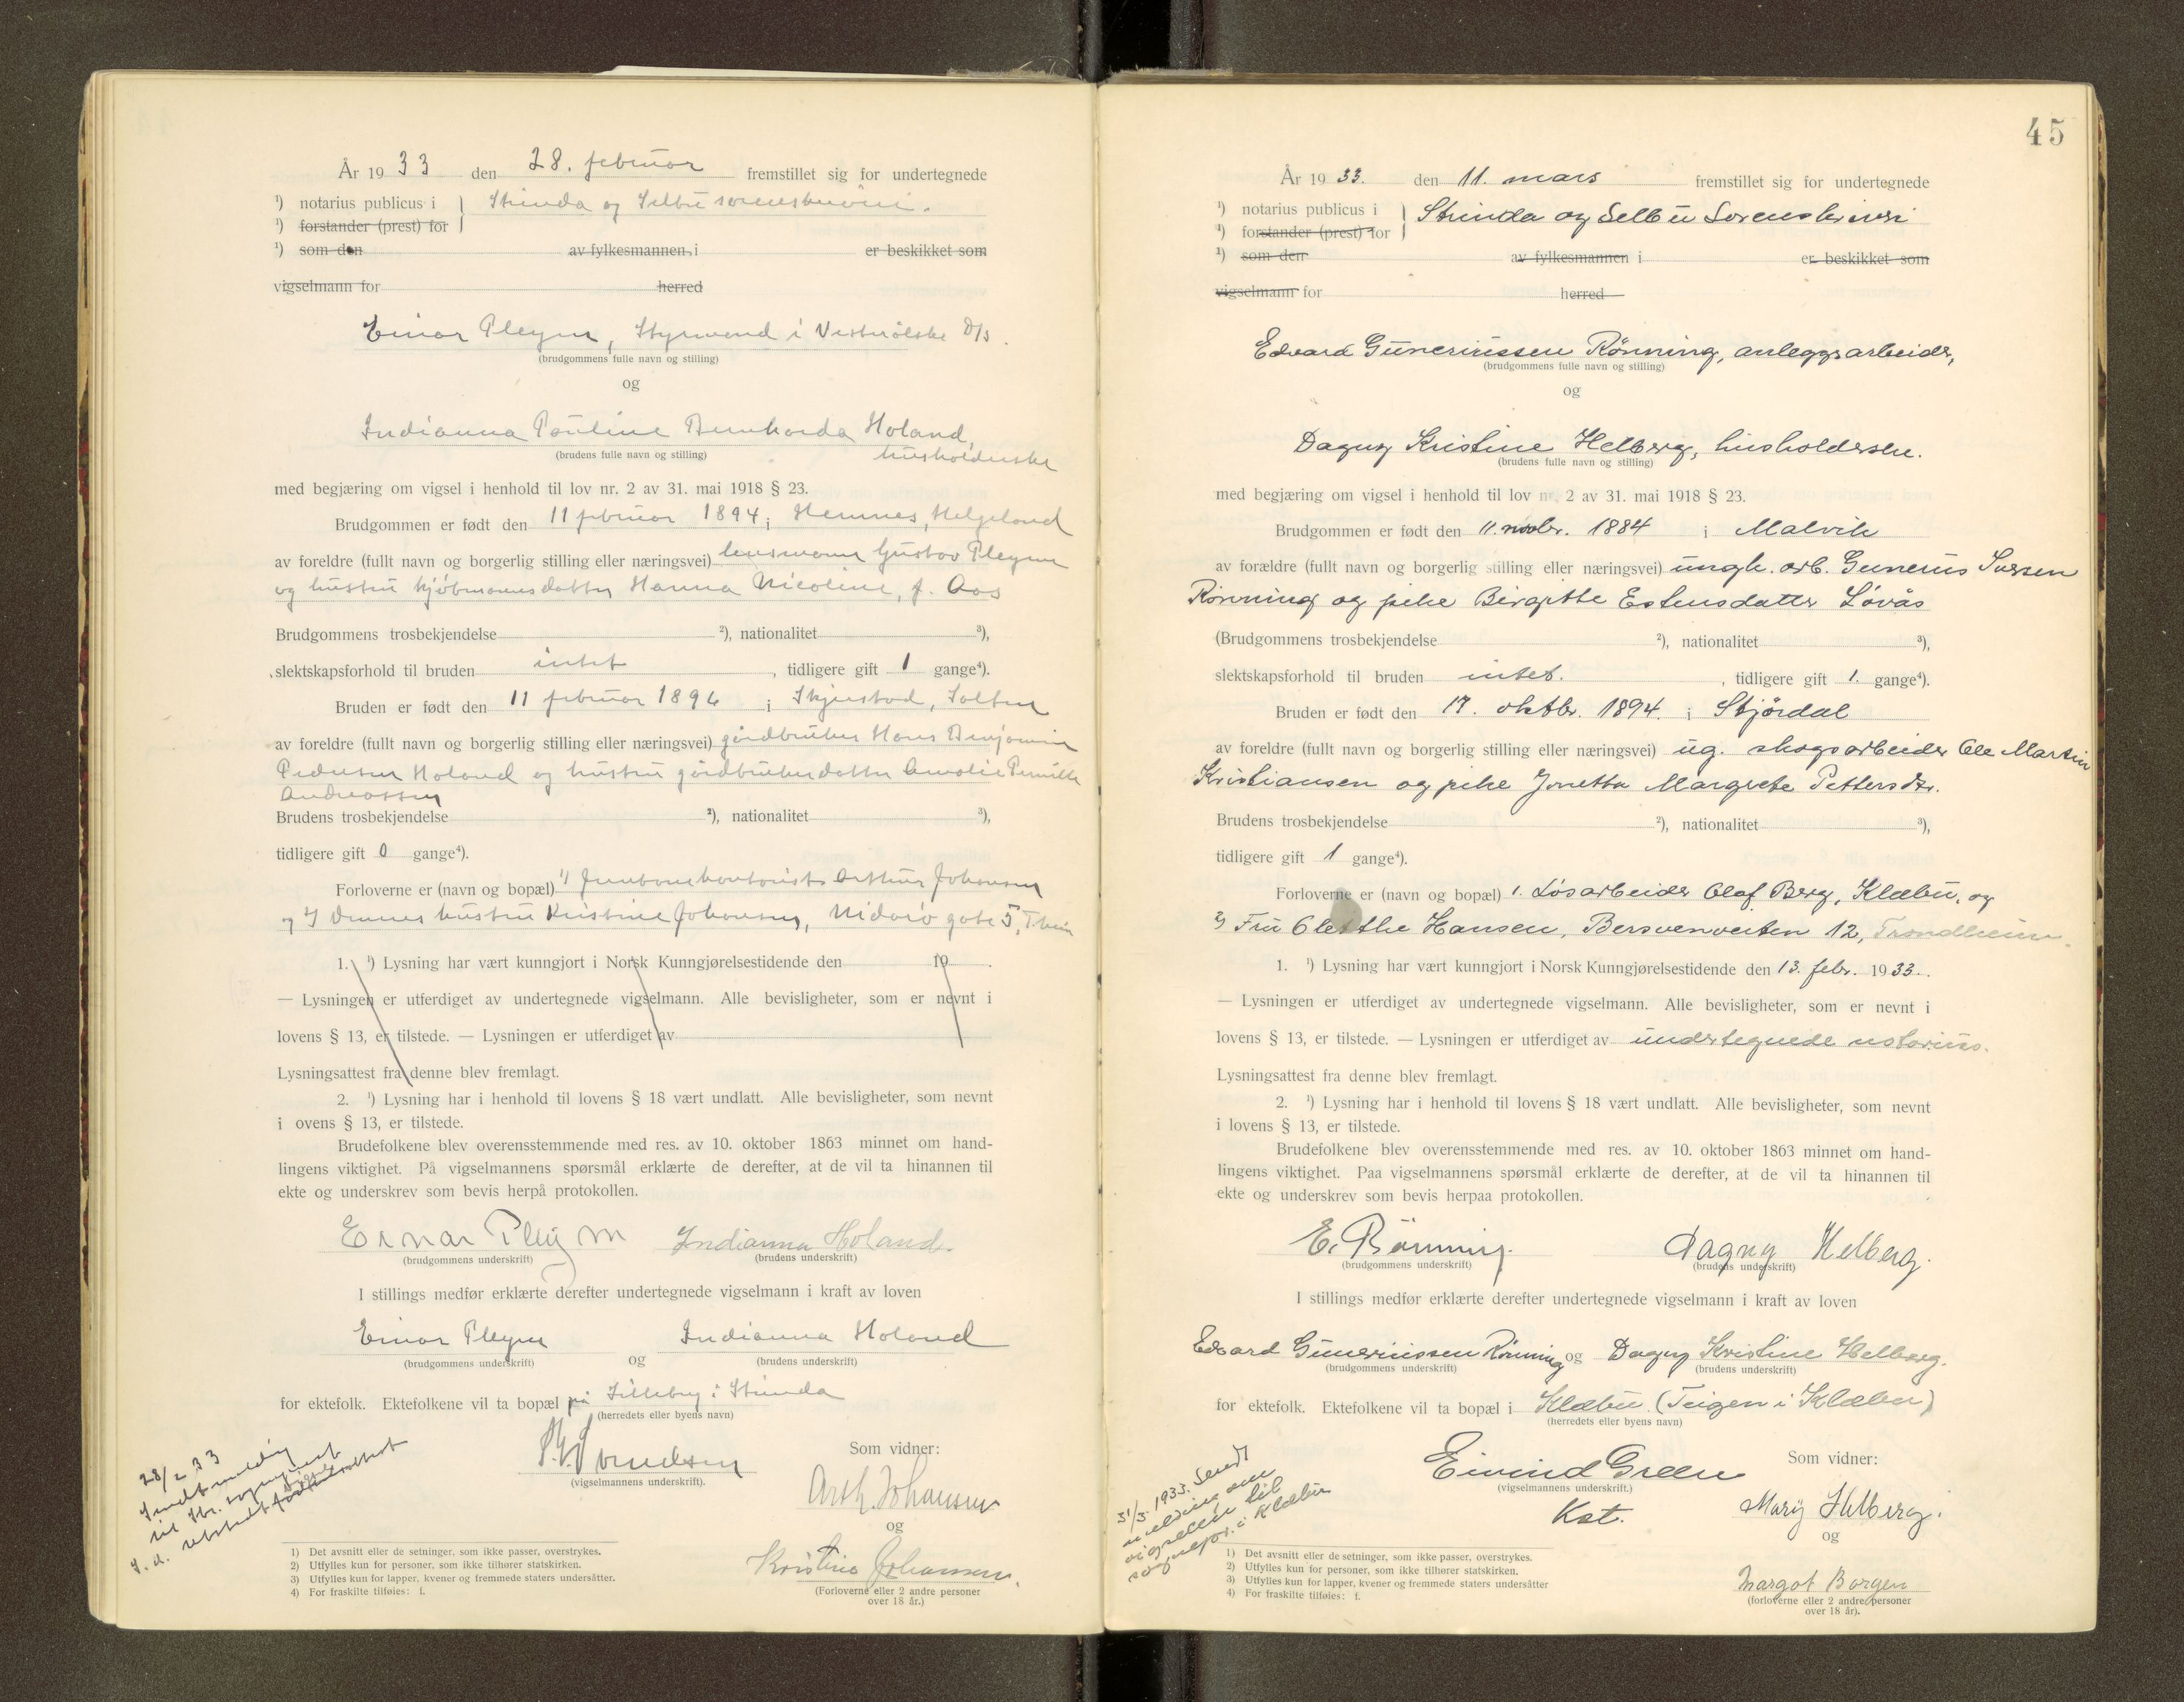 År 1933 den 28. februar fremstillet sig for undertegnede
¹) notarius publicus i } Strinda og Selbu sorenskriveri.
¹) forstander (prest) for
¹) som den av fylkesmannen i er beskikket som
vigselmann for herred
Einar Pleym, Styrmand i Vesterålske D/S.
(brudgommens fulle navn og stilling)
og
Indianna Pauline Bernharda Holand,
husholderske
(brudens fulle navn og stilling)
med begjæring om vigsel i henhold til lov nr. 2 av 31. mai 1918 § 23.
Brudgommen er født den 11 februar 1894 i Hemnes, Helgeland
av foreldre (fullt navn og borgerlig stilling eller næringsvei) lensmann Gustav Pleym
og hustru kjøbmannsdatter Hanna Nicoline, f. Aas
Brudgommens trosbekjendelse ²), nationalitet ³),
slektskapsforhold til bruden intet, tidligere gift 1 gange⁴).
Bruden er født den 11 februar 1896 i Skjerstad, Salten
av foreldre (fullt navn og borgerlig stilling eller næringsvei) gårdbruker Hans Benjamin
Pedersen Holand og hustru gårdbrukerdatter Amalie Pernille
Andreassen
Brudens trosbekjendelse ²), nationalitet ³),
tidligere gift 0 gange⁴).
Forloverne er (navn og bopæl) 1) Jernbanekontorist Arthur Johansen
og 2) Dennes hustru Kristine Johansen, Nidarø gate 5, T.heim
1. ¹) Lysning har vært kunngjort i Norsk Kunngjørelsestidende den 19 .
— Lysningen er utferdiget av undertegnede vigselmann. Alle bevisligheter, som er nevnt i
lovens § 13, er tilstede. — Lysningen er utferdiget av
Lysningsattest fra denne blev fremlagt.
2. ¹) Lysning har i henhold til lovens § 18 vært undlatt. Alle bevisligheter, som nevnt
i ovens § 13, er tilstede.
Brudefolkene blev overensstemmende med res. av 10. oktober 1863 minnet om hand-
lingens viktighet. På vigselmannens spørsmål erklærte de derefter, at de vil ta hinannen til
ekte og underskrev som bevis herpå protokollen.
Einar Pleym Indianna Holand.
(brudgommens underskrift) (brudens underskrift)
I stillings medfør erklærte derefter undertegnede vigselmann i kraft av loven
Einar Pleym og Indianna Holand
(brudgommens underskrift) (brudens underskrift)
for ektefolk. Ektefolkene vil ta bopæl på Lilleby i Strinda
(herredets eller byens navn)
(vigselmannens underskrift).
Som vidner:
Arth. Johansen
og
Kristine Johansen.
(Forloverne eller 2 andre personer
over 18 år.)
28/2 33
Sendt melding
til
1) Det avsnitt eller de setninger, som ikke passer, overstrykes.
2) Utfylles kun for personer, som ikke tilhører statskirken.
3) Utfylles kun for lapper, kvener og fremmede staters undersåtter.
4) For fraskilte tilføies: f.
45
År 1933. den 11. mars fremstillet sig for undertegnede
¹) notarius publicus i } Strinda og Selbu Sorenskriveri
¹) forstander (prest) for
¹) som den av fylkesmannen i er beskikket som
vigselmann for herred
Edvard Guneriussen Rønning, anleggsarbeider,
(brudgommens fulle navn og stilling)
og
Dagny Kristine Helberg, husholderske.
(brudens fulle navn og stilling)
med begjæring om vigsel i henhold til lov nr. 2 av 31. mai 1918 § 23.
Brudgommen er født den 11. novbr. 1884 i Malvik
av forældre (fullt navn og borgerlig stilling eller næringsvei) ungk. arb. Gunerius Iversen
Rønning og pike Birgitte Estensdatter Løvås
(Brudgommens trosbekjendelse ²), nationalitet ³),
slektskapsforhold til bruden intet., tidligere gift 1. gange⁴).
Bruden er født den 17. oktbr. 1894. i Stjørdal
av foreldre (fullt navn og borgerlig stilling eller næringsvei) ug. skogsarbeider Ole Martin
Kristiansen og pike Jonetta Margrete Pettersdtr.
Brudens trosbekjendelse ²), nationalitet ³),
tidligere gift 1 gange⁴).
Forloverne er (navn og bopæl) 1. Løsarbeider Olaf Berg, Klæbu, og
2) Fru Olethe Hansen, Bersvenveiten 12, Trondheim.
1. ¹) Lysning har vært kunngjort i Norsk Kunngjørelsestidende den 13. febr. 1933.
— Lysningen er utferdiget av undertegnede vigselmann. Alle bevisligheter, som er nevnt i
lovens § 13, er tilstede. — Lysningen er utferdiget av undertegnede notarius.
Lysningsattest fra denne blev fremlagt.
2. ¹) Lysning har i henhold til lovens § 18 vært undlatt. Alle bevisligheter, som nevnt
i lovens § 13, er tilstede.
Brudefolkene blev overensstemmende med res. av 10. oktober 1863 minnet om hand-
lingens viktighet. Paa vigselmannens spørsmål erklærte de derefter, at de vil ta hinannen til
ekte og underskrev som bevis herpaa protokollen.
E. Rönning. Dagny Helberg.
(brudgommens underskrift) (brudens underskrift)
I stillings medfør erklærte derefter undertegnede vigselmann i kraft av loven
Edvard Guneriussen Rønning og Dagny Kristine Helberg.
(brudgommens underskrift) (brudens underskrift)
for ektefolk. Ektefolkene vil ta bopæl i Klæbu (Teigen i Klæbu)
(herredets eller byens navn)
Eivind Green
(vigselmannens underskrift.)
Kst.
Som vidner:
Mary Helberg.
og
Margot Borgen
(forloverne eller 2 andre personer
over 18 år).
31/3. 1933. Sendt
melding om
vigselen til
sognepr. i Klæbu
1) Det avsnitt eller de setninger, som ikke passer, overstrykes.
2) Utfylles kun for personer, som ikke tilhører statskirken.
3) Utfylles kun for lapper, kvener og fremmede staters undersåtter
4) For fraskilte tilføies: f.